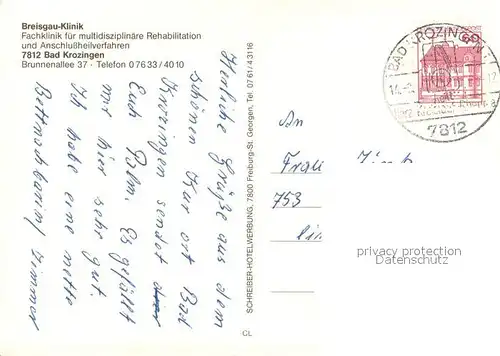 Breisgau-Klinik
Fachklinik für multidisziplinäre Rehabilitation
und Anschlußheilverfahren
7812 Bad Krozingen
Brunnenallee 37 · Telefon 07633/4010
Herzliche Grüße aus dem
schönen Kurort Bad
Krozingen sendet
Euch Palm. Es gefällt
mir hier sehr gut.
Ich habe eine nette
Bettnachbarin/ Zimmer
SCHREIBER-HOTELWERBUNG, 7800 Freiburg-St. Georgen, Tel. 0761/43116
CL
BAD KROZINGEN
7812
An
753
privacy protection
Datenschutz